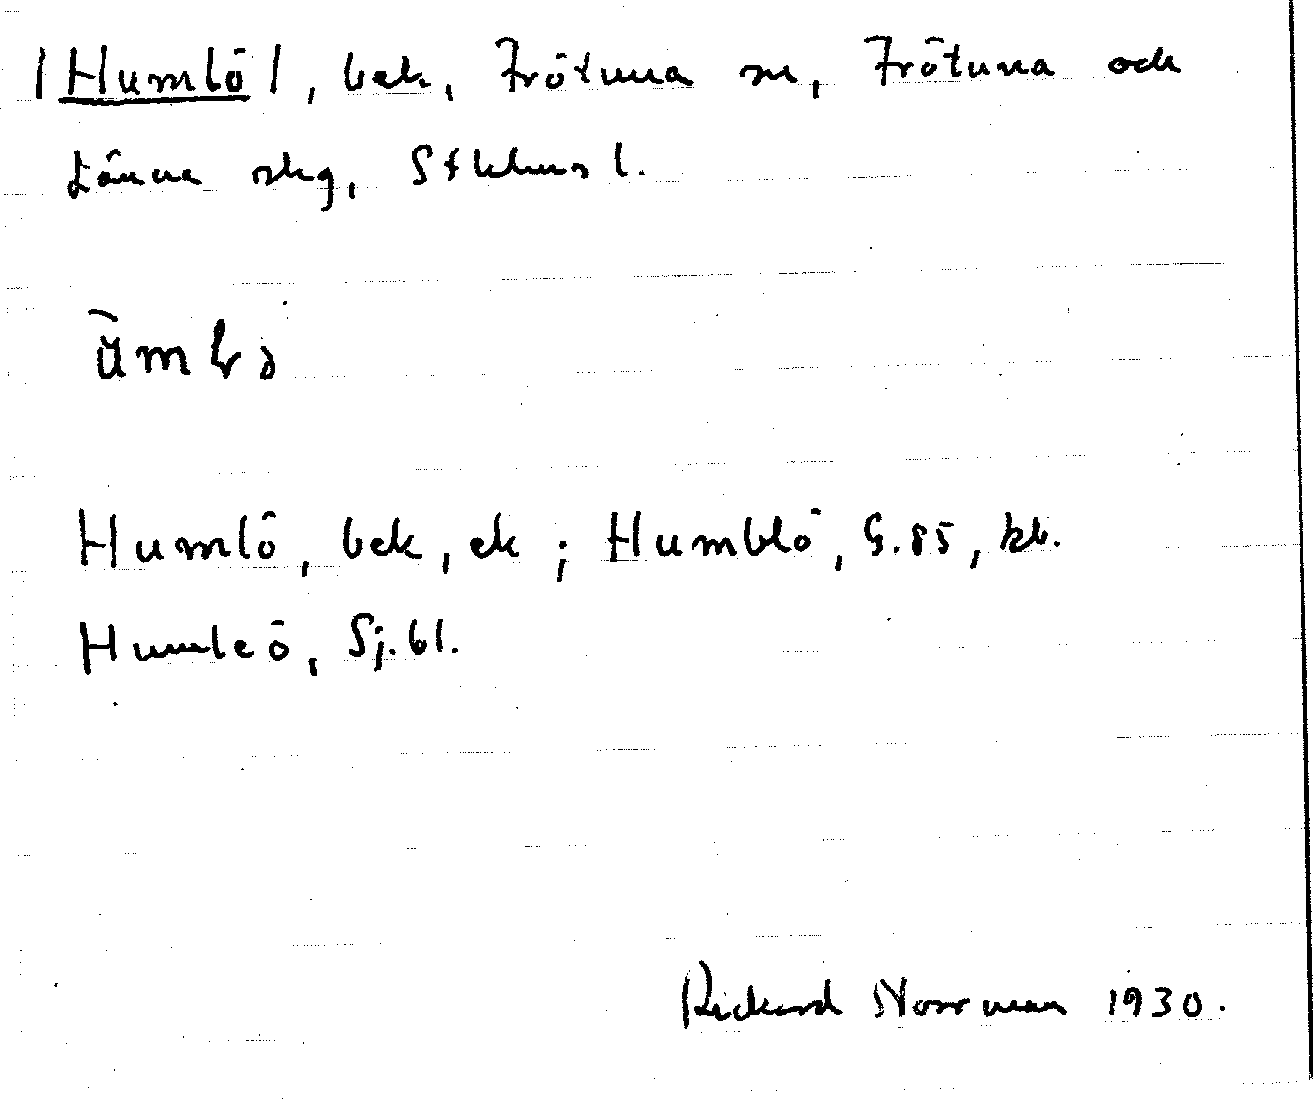 |Humlö|, bek, Frötuna sn, Frötuna och
Länna skg, Stkhms l.
Humlö, bek, ek ; Humblö, G.85, kb.
Humleö, Sj.bl.
Rickard Norrman 1930.